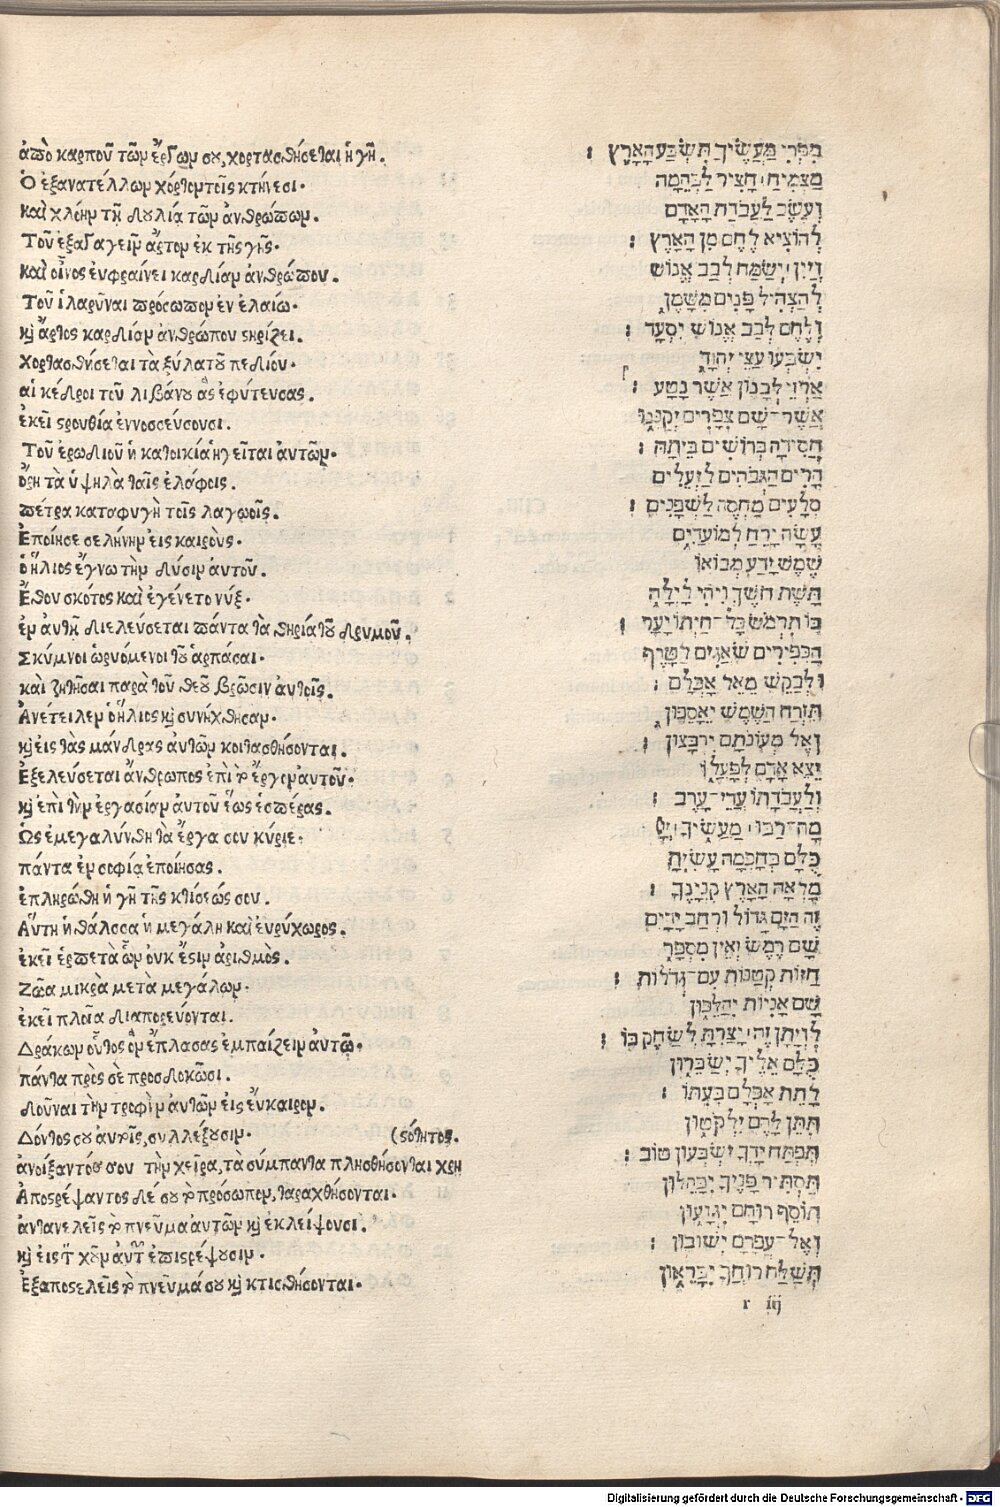 ἀπὸ καρποῦ τῶν ἔργων σου, χορτασθήσεται ἡ γῆ.
Ὁ ἐξανατέλλων χόρτον τοῖς κτήνεσι.
καὶ χλόην τῇ δουλίᾳ τῶν ἀνθρώπων.
Τοῦ ἐξαγαγεῖν ἄρτον ἐκ τῆς γῆς.
καὶ οἶνος ἐυφραίνει καρδίαν ἀνθρώπου.
Τοῦ ἱλαρῦναι πρόσωπον ἐν ἐλαίῳ.
καὶ ἄρτος καρδίαν ἀνθρώπου στηρίζει.
Χορτασθήσεται τὰ ξύλα τοῦ πεδίου.
αἱ κέδροι τοῦ λιβάνου ἃς ἐφύτευσας.
ἐκεῖ στρουθία ἐννοσσεύσουσι.
Τοῦ ἐρωδιοῦ ἡ κατοικία ἡγεῖται ἀυτῶν.
ὄρη τὰ ὑψηλὰ ταῖς ἐλάφοις.
πέτρα καταφυγὴ τοῖς λαγωοῖς.
Ἐποίησε σελήνην εἰς καιρούς.
ὁ ἥλιος ἔγνω τὴν δύσιν ἀυτοῦ.
Ἔθου σκότος καὶ ἐγένετο νύξ.
ἐν ἀυτῇ διελεύσεται πάντα τὰ θηρία τοῦ δρυμοῦ.
Σκύμνοι ὠρυόμενοι τοῦ ἁρπάσαι.
καὶ ζητῆσαι παρὰ τοῦ θεοῦ βρῶσιν ἀυτοῖς.
Ἀνέτειλεν ὁ ἥλιος καὶ συνήχθησαν.
καὶ εἰς τὰς μάνδρας ἀυτῶν κοιτασθήσονται.
Ἐξελεύσεται ἄνθρωπος ἐπὶ τὸ ἔργον ἀυτοῦ.
καὶ ἐπὶ τὴν ἐργασίαν ἀυτοῦ ἕως ἑσπέρας.
Ὡς ἐμεγαλύνθη τὰ ἔργα σου κύριε.
πάντα ἐν σοφίᾳ ἐποίησας.
ἐπληρώθη ἡ γῆ τῆς κτίσεώς σου.
Αὕτη ἡ θάλασσα ἡ μεγάλη καὶ ἐυρύχωρος.
ἐκεῖ ἑρπετὰ ὧν ὀυκ ἔστιν ἀριθμὸς.
Ζῶα μικρὰ μετὰ μεγάλων.
ἐκεῖ πλοῖα διαπορεύονται.
Δράκων οὗτος ὃν ἔπλασας ἐμπαίζειν ἀυτῷ.
πάντα πρὸς σὲ προσδοκῶσι.
Δοῦναι τὴν τροφὴν ἀυτῶν εἰς ἔυκαιρον.
Δόντος σου ἀυτοῖς, συλλέξουσιν. (στότητος.
ἀνοίξαντός σου τὴν χεῖρα, τὰ σύμπαντα πλησθήσονται χρη
Ἀποστρέψαντος δέ σου τὸ πρόσωπον, ταραχθήσονται.
ἀντανελεῖς τὸ πνεῦμα ἀυτῶν καὶ ἐκλείψουσι.
καὶ εἰς τὸν χοῦν ἀυτῶν ἐπιστρέψουσιν.
Ἐξαποστελεῖς τὸ πνεῦμά σου καὶ κτισθήσονται.
מִפְּרִי מַעֲשֶׂיךָ תִּשְׂבַּע הָאָרֶץ :
מַצְמִיחַ חָצִיר לַבְּהֵמָה
וְעֵשֶׂב לַעֲבֹדַת הָאָדָם
לְהוֹצִיא לֶחֶם מִן הָאָרֶץ :
וְיַיִן יְשַׂמַּח לְבַב אֱנוֹשׁ
לְהַצְהִיל פָּנִים מִשָּׁמֶן
וְלֶחֶם לְבַב אֱנוֹשׁ יִסְעָד :
יִשְׂבְּעוּ עֲצֵי יְהוָה
אַרְזֵי לְבָנוֹן אֲשֶׁר נָטָע :
אֲשֶׁר־שָׁם צִפֳּרִים יְקַנֵּנוּ
חֲסִידָה בְּרוֹשִׁים בֵּיתָהּ :
הָרִים הַגְּבֹהִים לַיְּעֵלִים
סְלָעִים מַחְסֶה לַשְׁפַנִּים :
עָשָׂה יָרֵחַ לְמוֹעֲדִים
שֶׁמֶשׁ יָדַע מְבוֹאוֹ
תָּשֶׁת חֹשֶׁךְ וִיהִי לָיְלָה
בּוֹ תִרְמֹשׂ כָּל־חַיְתוֹ יָעַר :
הַכְּפִירִים שֹׁאֲגִים לַטָּרֶף
וּלְבַקֵּשׁ מֵאֵל אָכְלָם :
תִּזְרַח הַשֶּׁמֶשׁ יֵאָסֵפוּן
וְאֶל מְעוֹנֹתָם יִרְבָּצוּן :
יֵצֵא אָדָם לְפָעֳלוֹ
וְלַעֲבֹדָתוֹ עֲדֵי־עָרֶב :
מָה־רַבּוּ מַעֲשֶׂיךָ יְיָ
כֻּלָּם בְּחָכְמָה עָשִׂיתָ
מָלְאָה הָאָרֶץ קִנְיָנֶךָ :
זֶה הַיָּם גָּדוֹל וּרְחַב יָדָיִם
שָׁם רֶמֶשׂ וְאֵין מִסְפָּר
חַיּוֹת קְטַנּוֹת עִם־גְּדֹלוֹת :
שָׁם אֳנִיּוֹת יְהַלֵּכוּן
לִוְיָתָן זֶה יָצַרְתָּ לְשַׂחֶק בּוֹ :
כֻּלָּם אֵלֶיךָ יְשַׂבֵּרוּן
לָתֵת אָכְלָם בְּעִתּוֹ :
תִּתֵּן לָהֶם יִלְקֹטוּן
תִּפְתַּח יָדְךָ יִשְׂבְּעוּן טוֹב :
תַּסְתִּיר פָּנֶיךָ יִבָּהֵלוּן
תּוֹסֵף רוּחָם יִגְוָעוּן
וְאֶל־עֲפָרָם יְשׁוּבוּן :
תְּשַׁלַּח רוּחֲךָ יִבָּרֵאוּן
r iij
Digitalisierung gefördert durch die Deutsche Forschungsgemeinschaft - DFG